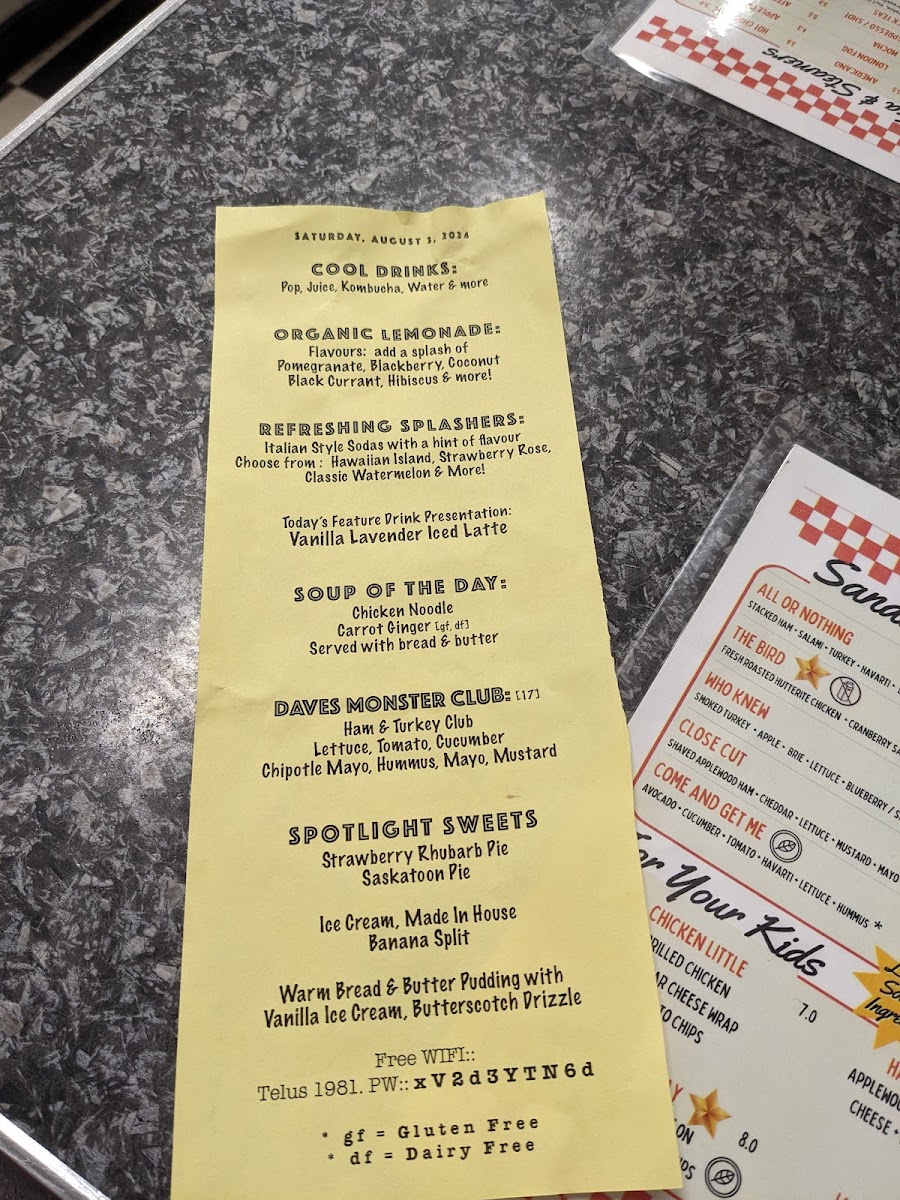 SATURDAY, AUGUST 3, 2024
COOL DRINKS:
Pop, Juice, Kombucha, Water & more
ORGANIC LEMONADE:
Flavours: add a splash of
Pomegranate, Blackberry, Coconut
Black Currant, Hibiscus & more!
REFRESHING SPLASHERS:
Italian Style Sodas with a hint of flavour
Choose from : Hawaiian Island, Strawberry Rose,
Classic Watermelon & More!
Today's Feature Drink Presentation:
Vanilla Lavender Iced Latte
SOUP OF THE DAY:
Chicken Noodle
Carrot Ginger [gf, df]
Served with bread & butter
DAVES MONSTER CLUB: [17]
Ham & Turkey Club
Lettuce, Tomato, Cucumber
Chipotle Mayo, Hummus, Mayo, Mustard
SPOTLIGHT SWEETS
Strawberry Rhubarb Pie
Saskatoon Pie
Ice Cream, Made In House
Banana Split
Warm Bread & Butter Pudding with
Vanilla Ice Cream, Butterscotch Drizzle
Free WIFI::
Telus 1981. PW:: xV2d3YTN6d
* gf = Gluten Free
* df = Dairy Free
& Steamers
AMERICANO
LONDON FOG
MOCHA
ALL OR NOTHING
STACKED HAM • SALAMI • TURKEY • HAVARTI •
THE BIRD
FRESH ROASTED HUTTERITE CHICKEN • CRANBERRY
WHO KNEW
SMOKED TURKEY • APPLE • BRIE • LETTUCE • BLUEBERRY /
CLOSE CUT
SHAVED APPLEWOOD HAM • CHEDDAR • LETTUCE • MUSTARD • MAYO
COME AND GET ME
AVOCADO • CUCUMBER • TOMATO • HAVARTI • LETTUCE • HUMMUS *
Your Kids
CHICKEN LITTLE 7.0
CHICKEN
CHEESE WRAP
CHIPS
8.0
CHEESE